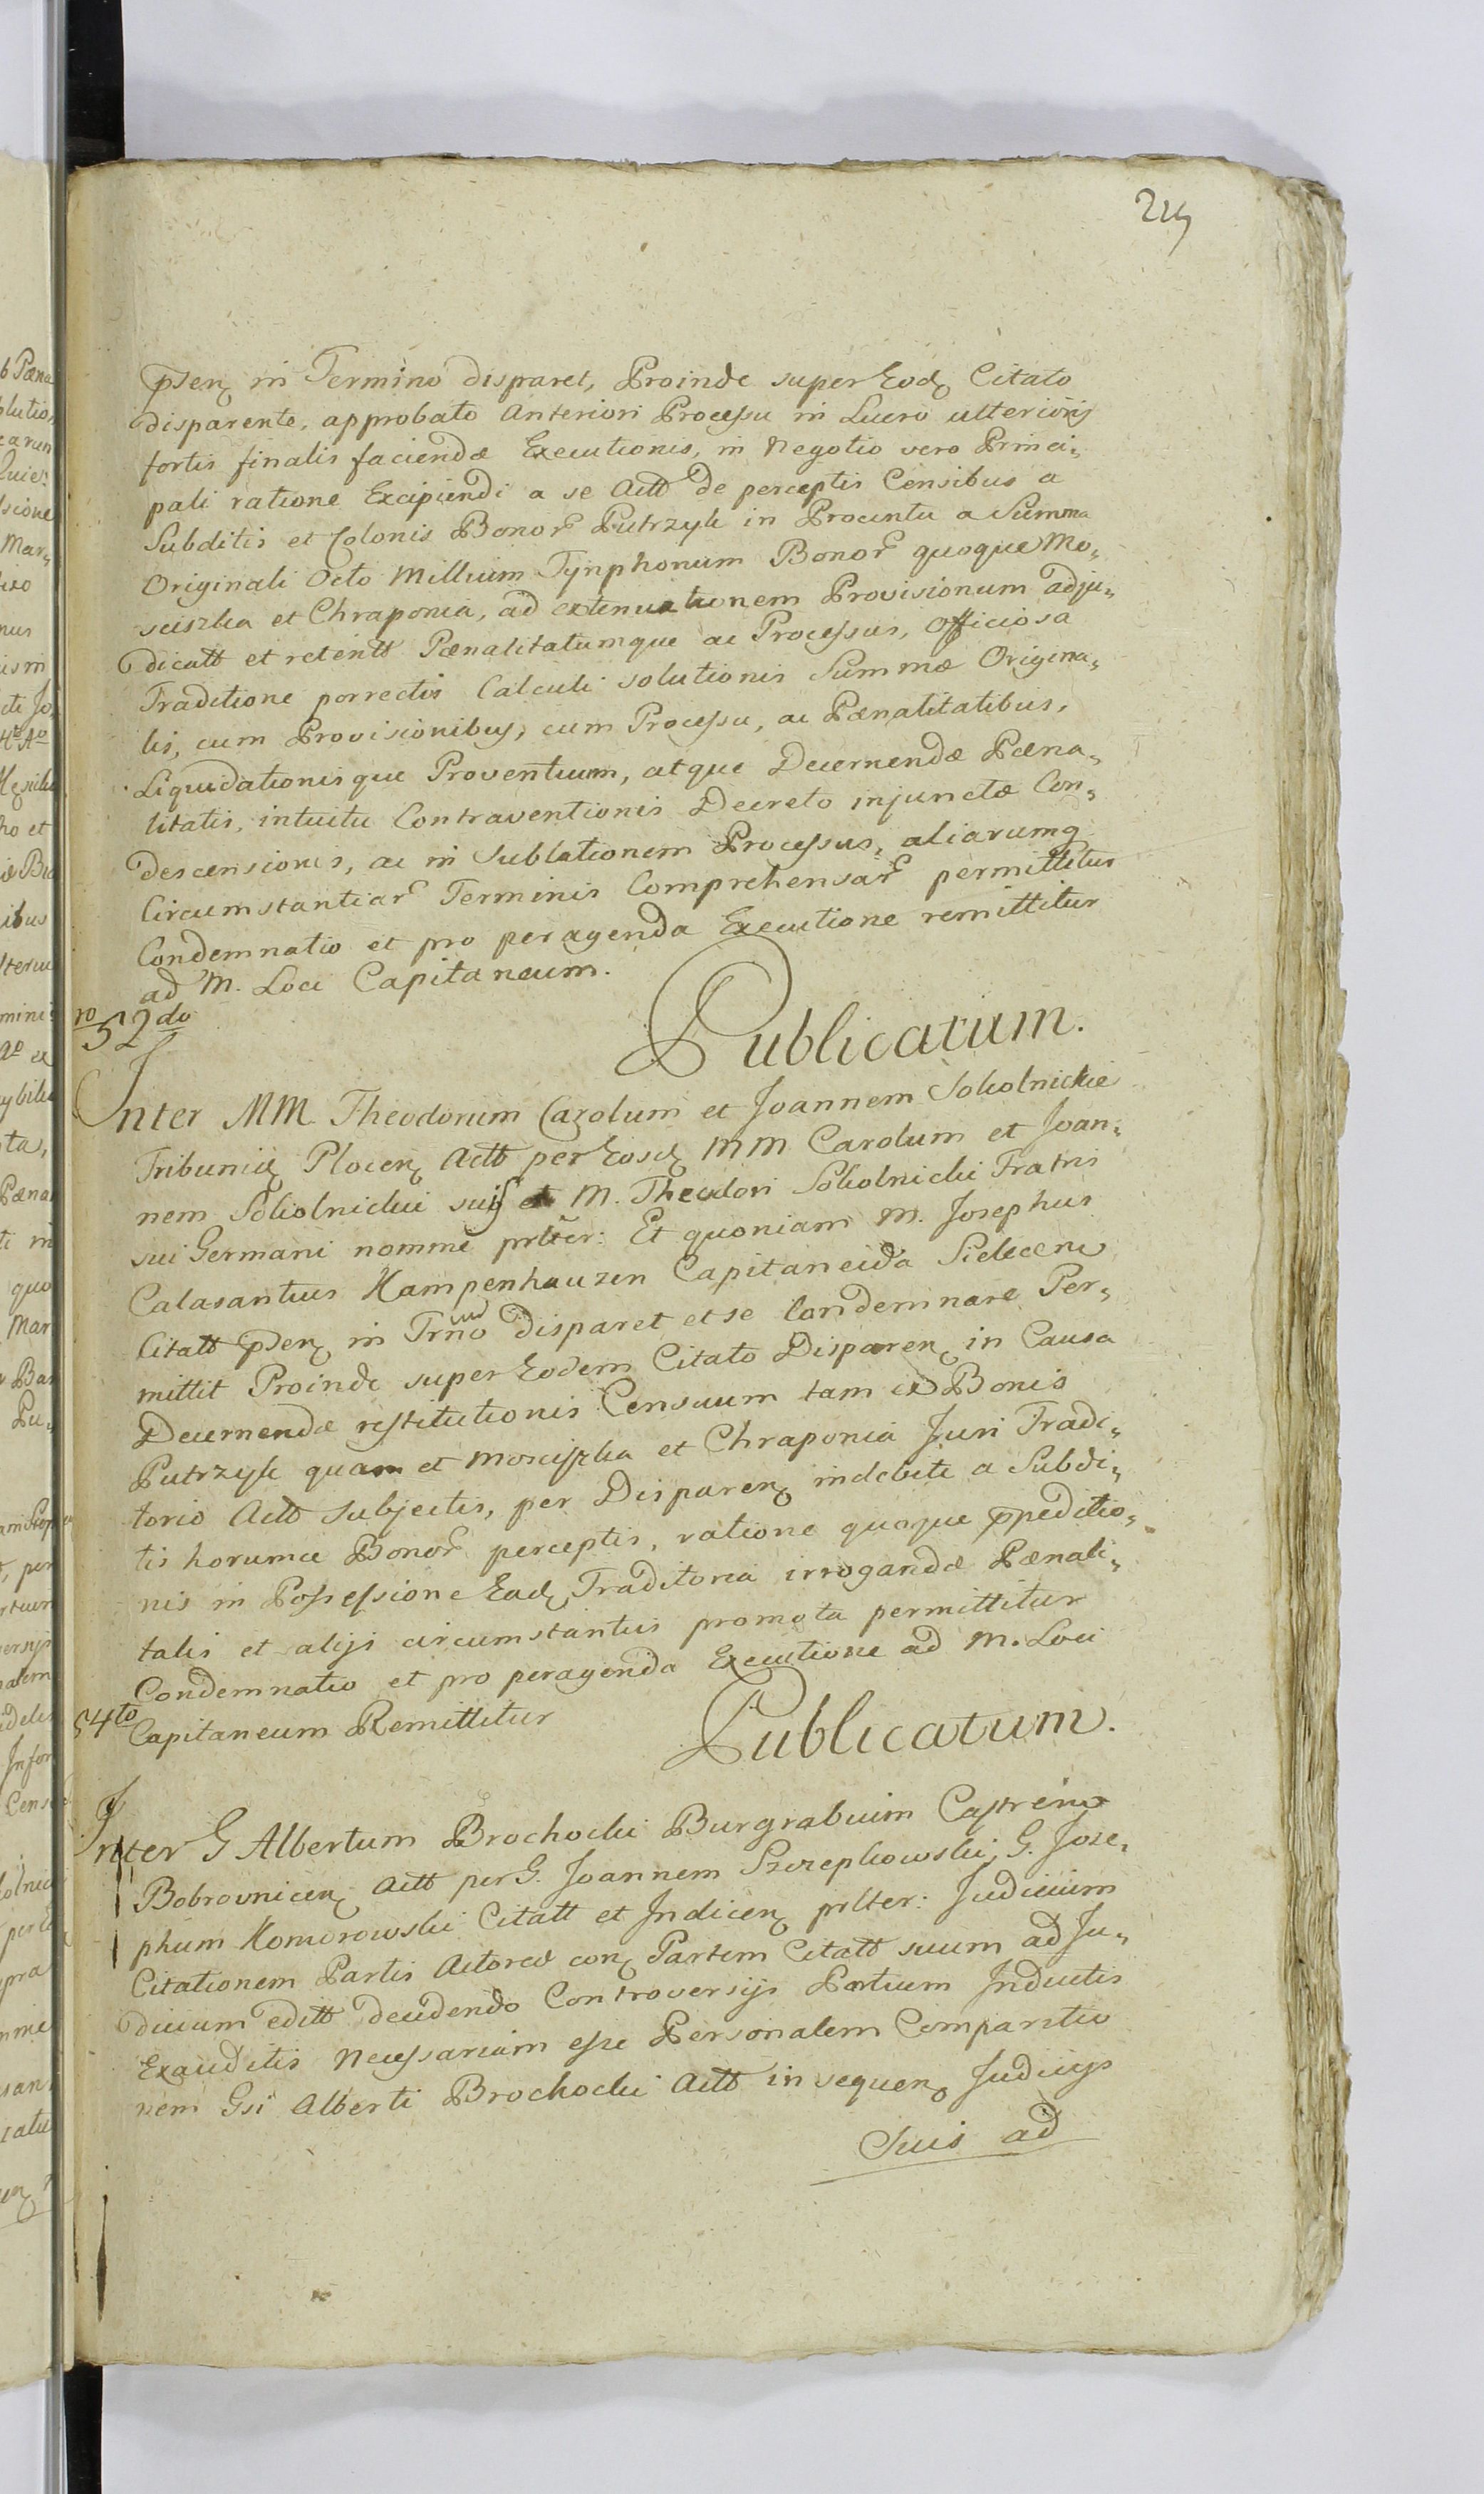 219
pñsen in Termino disparet, Proinde super Eod Citato
disparente, approbato anteriori Processu in Lucro ulterioris
fortis finalis faciendæ Executionis, in Negotio vero Princi-
pali ratione Excipiendi a se Actt de perceptis Censibus a
Subditis et Colonis Bonor Putrzyk in Procinctu a Summa
Originali Octo Millium Tynphonum Bonor quoque Mo-
sciszka et Chraponia, ad extenuationem Provisionum adju-
dicatt et retentt Pænalitatumque ac Processus, officiosa
Traditione porrectis Calculi solutionis Summæ Origina-
lis, cum Provisionibus, cum Processu, ac Pænalitatibus,
Liquidationisque Proventuum, atque Decernendæ Pæna-
litatis, intuitu Contraventionis Decreto injunctæ Con-
descensionis, ac in Sublationem Processus, aliarumq
Circumstantiar Terminis Comprehensar permittitur
Condemnatio et pro peragenda Executione remittitur
ad M. Loci Capitaneum.
52do
Publicatum.
Inter MM Theodorum Carolum et Joannem Sokolnickie
Tribunid Plocen Actt per Eosd MM Carolum et Joan-
nem Sokolnickii suis et M. Theodori Sokolnicki Fratris
sui Germani nomine prlter: Et quoniam M. Josephus
Calasantius Kampenhauzen Capitaneida Sielecen
Citatt pñsen in Trno disparet et se Condemnare Per-
mittit Proinde super Eodem Citato Disparen in Causa
Decernendæ restitutionis Censuum tam ex Bonis
Putrzyk quam et Mosciszka et Chraponia Juri Tradi-
torio Actt subjectis, per Disparen indebite a Subdi-
tis horumce Bonor perceptis, ratione quoque ppeditio-
nis in Possessione Ead Traditoria irrogandæ Pænali-
talis et alijs circumstantiis promota permittitur
Condemnatio et pro peragenda Executione ad M. Loci
Capitaneum Remittitur
54to
Publicatum.
Inter G Albertum Brochocki Burgrabium Castren
Bobrovnicen Actt per G. Joannem Szczepkowski, G. Jose-
phum Komorowski Citatt et Indicen prlter: Judicium
Citationem Partis Actoreæ con Partem Citatt suum ad Ju-
dicium editt decidendo Controversijs Partium Inductis
Exauditis Necessariam esse Personalem Comparitio
nem Gsi Alberti Brochocki Actt in sequen Judicijs
Suis ad